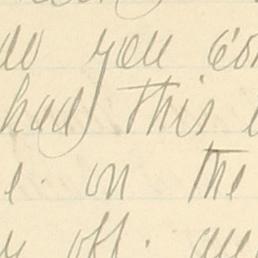 do you
had this
on the
off.